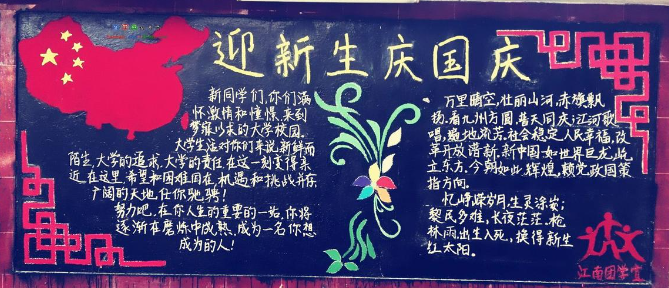 迎新生庆国庆
新同学们,你们满
怀激情和憧憬,来到
梦寐以求的大学校园。
大学生活对你们来说,新鲜而
陌生,大学的追求,大学的责任,在这一刻变得亲
近,在这里,希望和困难同在,机遇和挑战并存,
广阔的天地,任你驰骋!
努力吧,在你人生的重要的一站,你将
逐渐在磨炼中成熟,成为一名你想
成为的人!
万里晴空,壮丽山河,赤旗飘
扬。看九州方圆,普天同庆;江河歌
唱,遍地流芳。社会稳定,人民幸福,改
革开放谱新。新中国,如世界巨龙,屹
立东方。今朝如此辉煌,赖党政国策
指方向。
忆峥嵘岁月,生灵涂炭;
黎民多难,长夜茫茫。枪
林雨出生入死,换得新生
红太阳。
江南团学宣